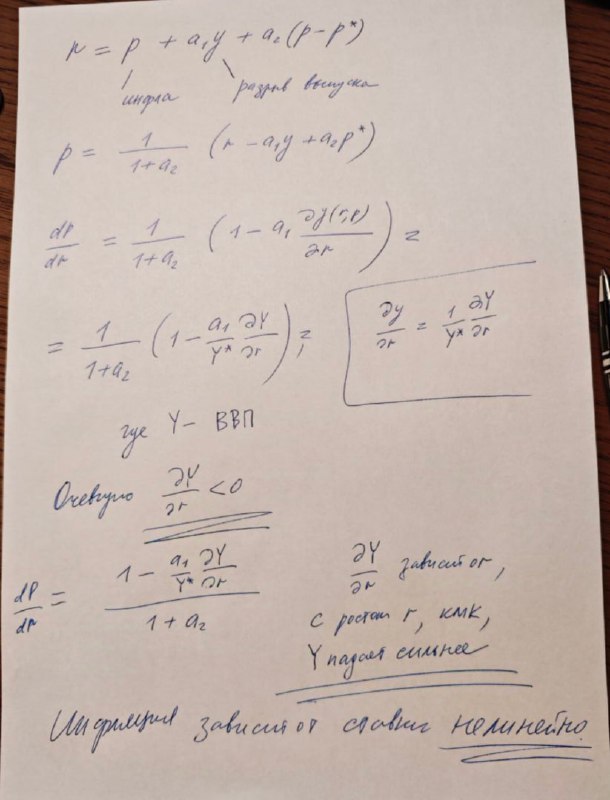 r = p + a₁y + a₂(p-p*)
инфла
разрыв выпуска
p = 1/(1+a₂) (r - a₁y + a₂p*)
dp/dr = 1/(1+a₂) (1 - a₁ ∂y(r,p)/∂r) =
= 1/(1+a₂) (1 - a₁/Y* ∂Y/∂r) =,
∂y/∂r = 1/Y* ∂Y/∂r
где Y - ВВП
Очевидно ∂Y/∂r < 0
dp/dr = (1 - a₁/Y* ∂Y/∂r)/(1 + a₂)
∂Y/∂r зависит от r,
с ростом r, кмк,
Y падает сильнее
Инфляция зависит от ставки нелинейно.